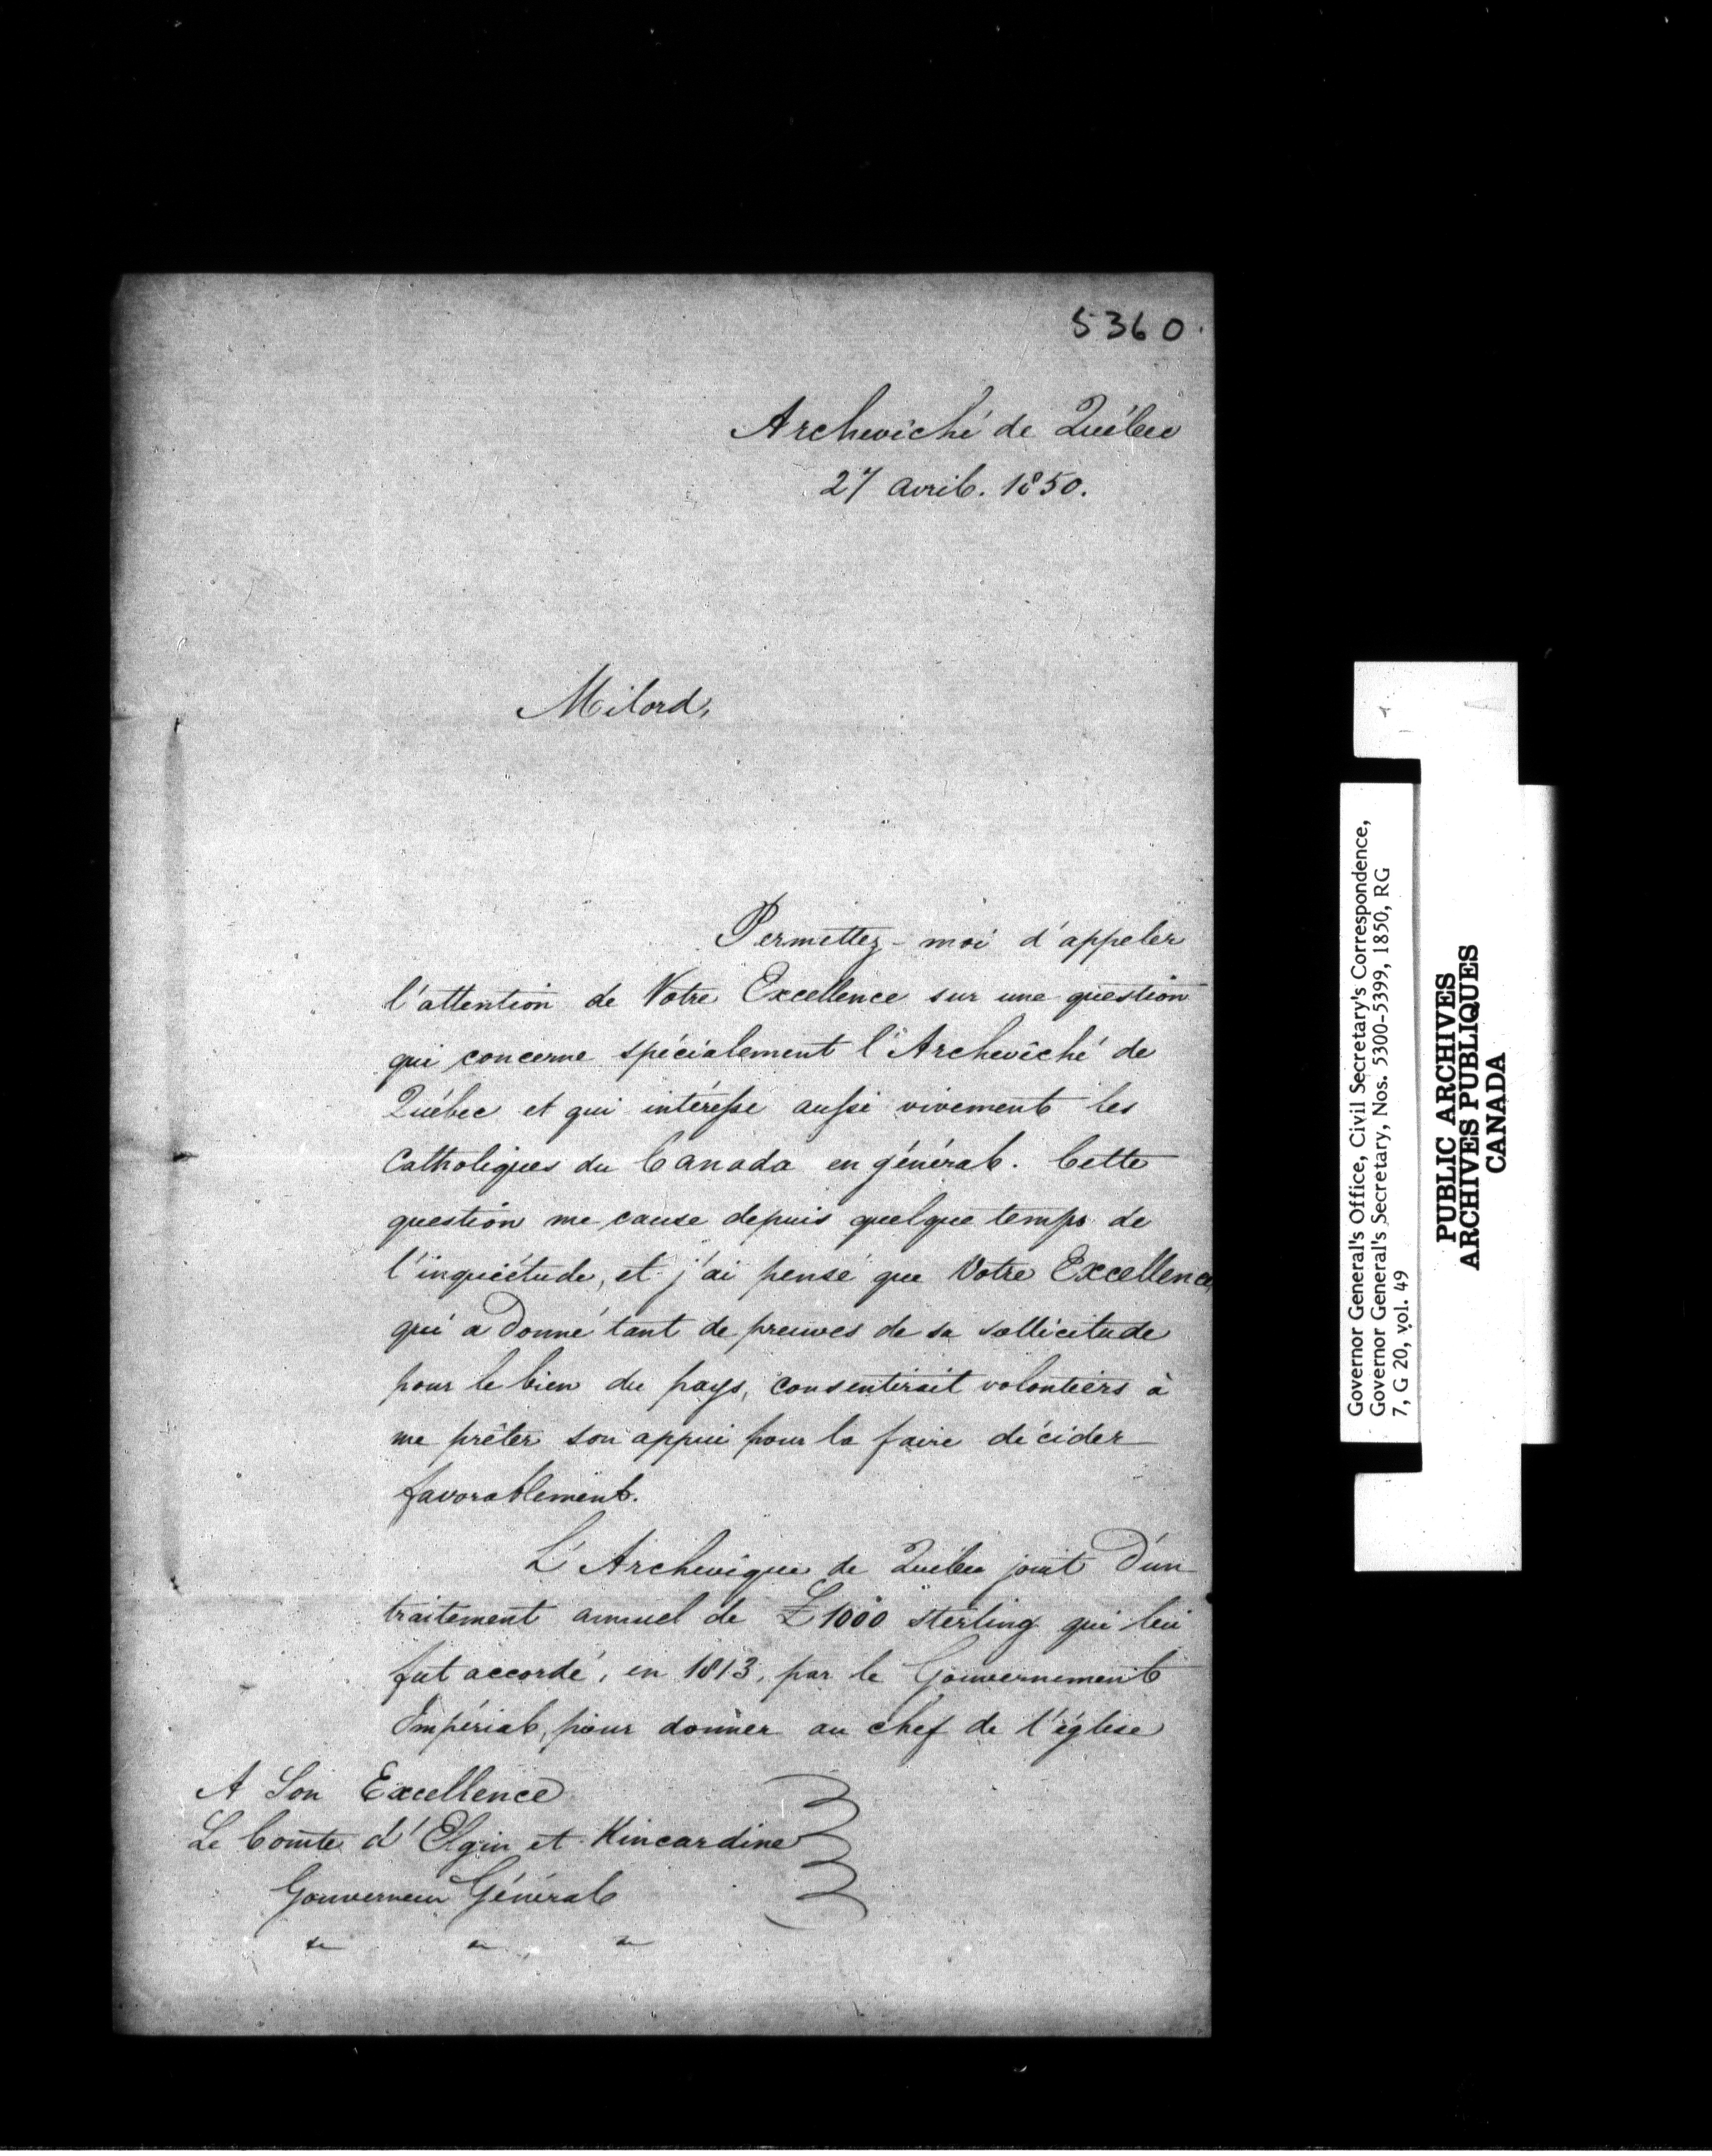 5360.
Archevêché de Québec
27 avril. 1850.
Milord,
Permettez-moi d'appeler
l'attention de Votre Excellence sur une question
qui concerne spécialement l'Archevêché de
Québec et qui intéresse aussi vivement les
Catholiques du Canada en général. Cette
question me cause depuis quelque temps de
l'inquiétude, et j'ai pensé que Votre Excellence,
qui a donné tant de preuves de sa sollicitude
pour le bien du pays, consentirait volontiers à
me prêter son appui pour la faire décider
favorablement.
L'Archevêque de Québec jouit d'un
traitement annuel de £1000 sterling qui lui
fut accordé, en 1813, par le Gouvernement
Impérial, pour donner au chef de l'église
A Son Excellence
Le Comte d'Elgin et Kincardine
Gouverneur Général
Governor General's Office, Civil Secretary's Correspondence,
Governor General's Secretary, Nos. 5300-5399, 1850, RG
7, G 20, vol. 49
PUBLIC ARCHIVES
ARCHIVES PUBLIQUES
CANADA